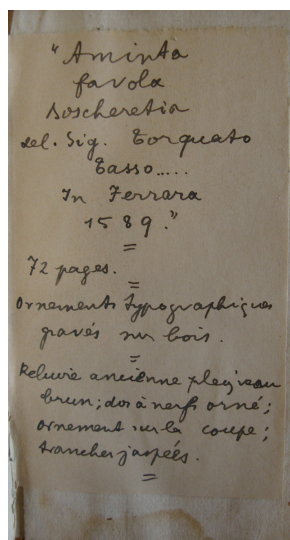 "Aminta
favola
boscheretia
del. Sig. Torquato
Tasso.....
In Ferrara
1589."
=
72 pages.
=
Ornements typographiques
gravés sur bois.
=
Reliure ancienne plein veau
brun; dos à nerfs orné;
ornement sur la coupe;
tranches jaspées.
=